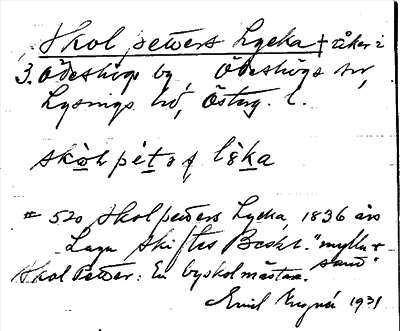 Skol petters Lycka † åker i
3. Ödeshögs by, Ödeshögs sn,
Lysings hd, Österg. l.
# 520 Skol petters Lycka, 1836 års
Laga Skiftes Beskr. "mylla &
Skol Petter: En byskolmästare. sand"
Emil 1931